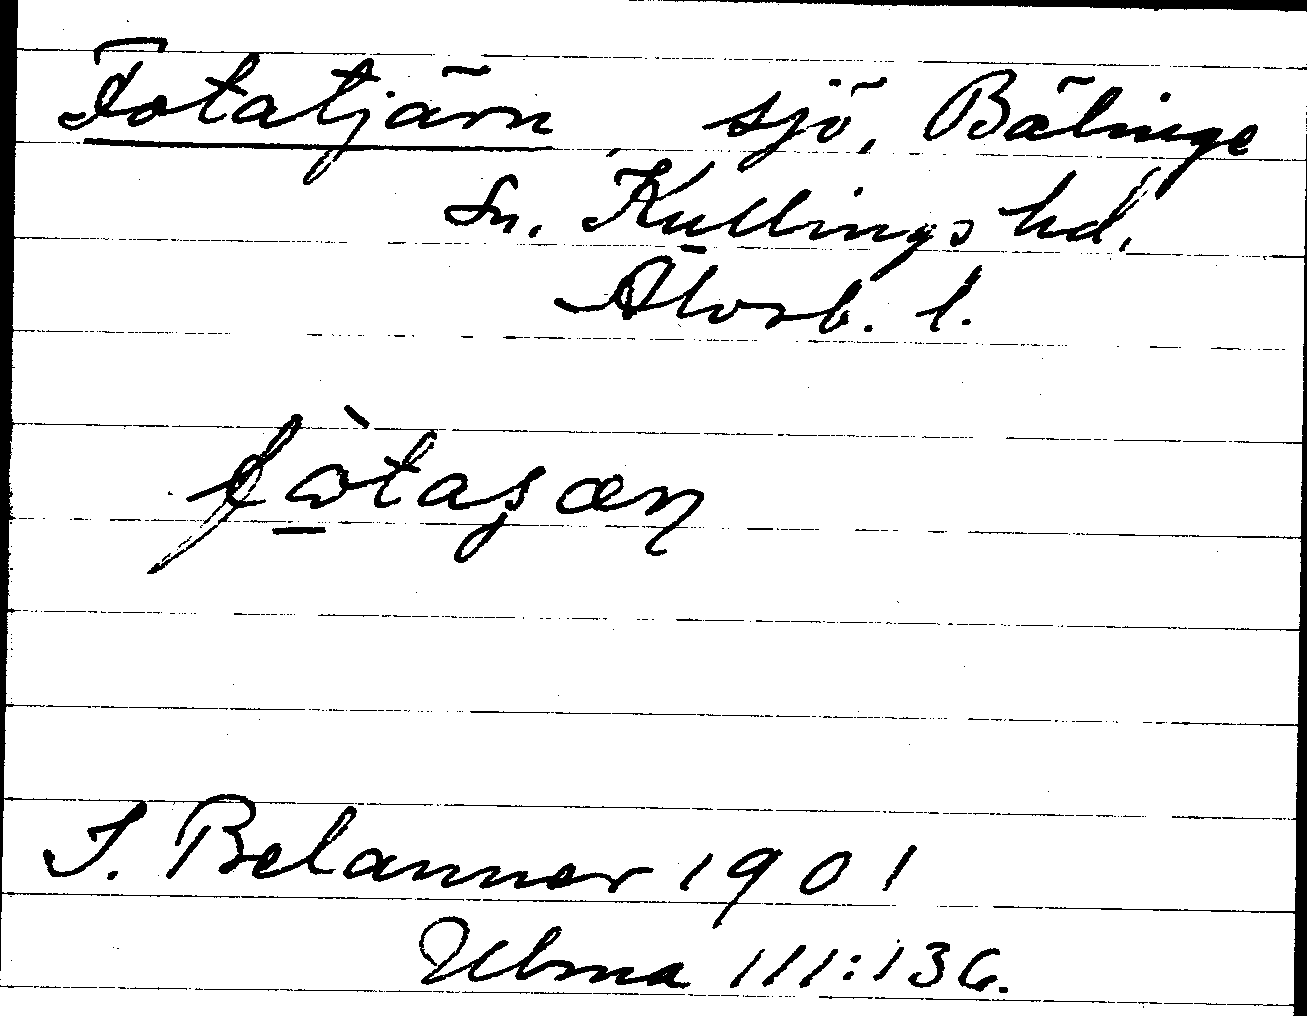 Fotatjärn sjö, Bälinge
Sn. Kullings hd.
Älvsb. l.
S. Belanner 1901
Ulma 111:136.